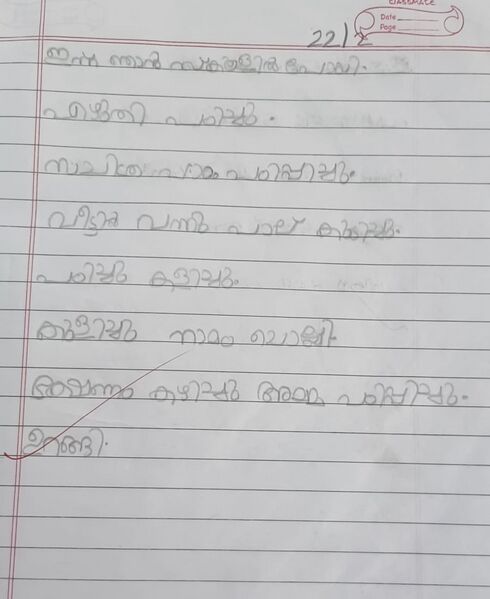 CLASSMATE
Date
Page
22/2
ഇന്ന് ഞാൻ സ്കൂളിൽ പോയി.
എഴുതി പഠിച്ചു.
പാഠം പഠിപ്പിച്ചു.
വീട്ടിൽ വന്നു പാല് കുടിച്ചു.
പഠിച്ചു കളിച്ചു.
കുളിച്ചു നാമം ചൊല്ലി.
ഭക്ഷണം കഴിച്ചു അമ്മ പഠിപ്പിച്ചു.
ഉറങ്ങി.